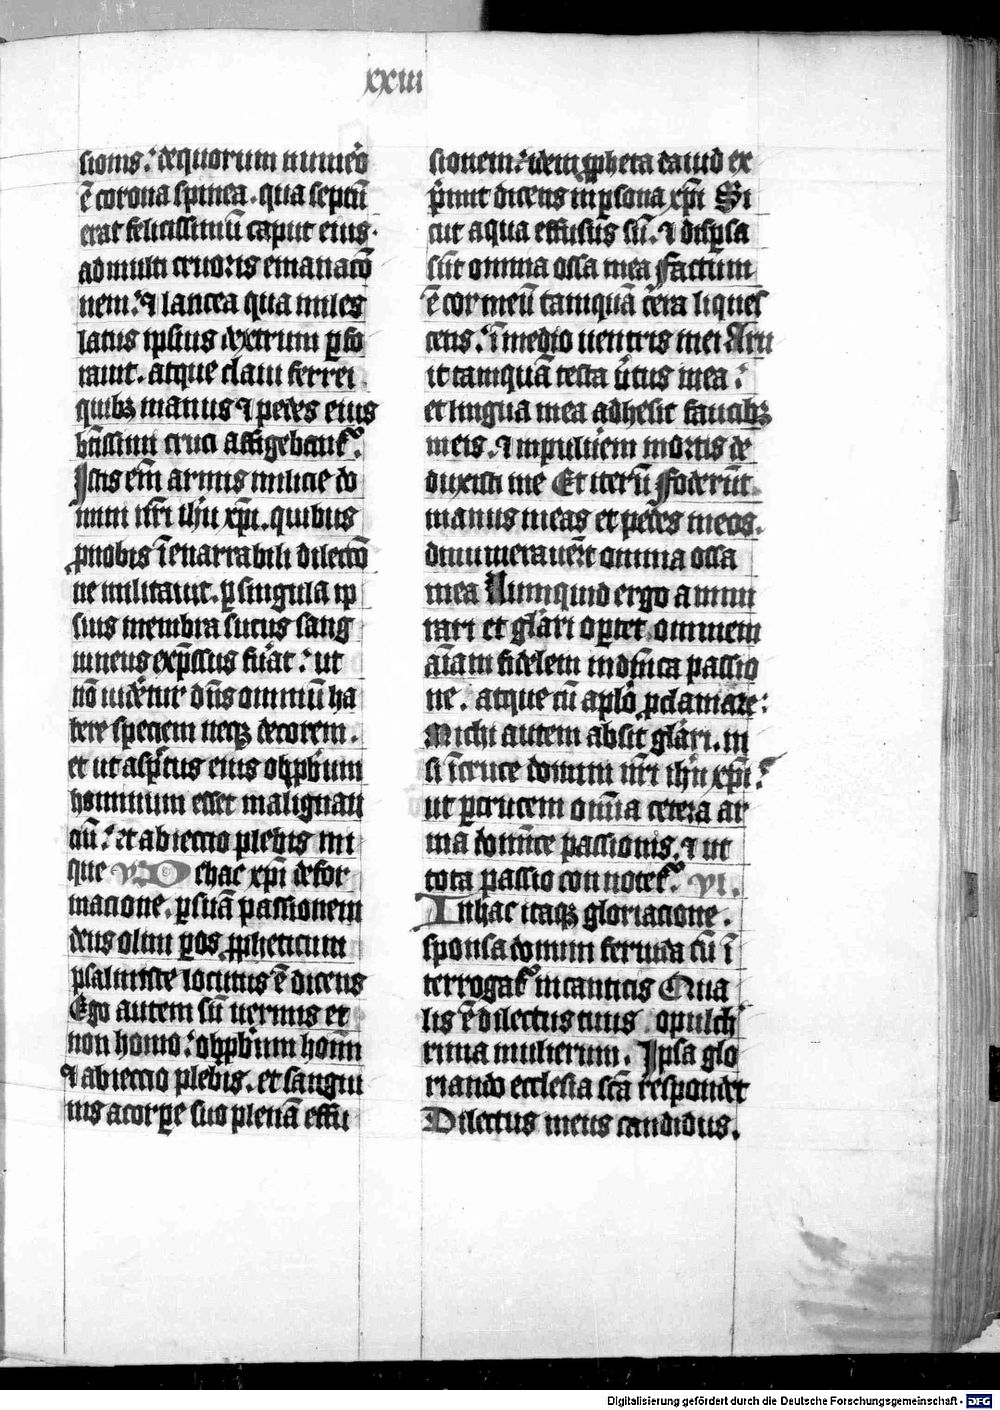 xxiii
sionis. de quorum numero
ē corona spinea. qua septū
erat felicissimū caput eius.
ad multi cruoris emanacō
nem. ⁊ lancea qua miles
latus ipsius dextrum ꝑfo
rauit. atque claui ferrei
quibꝫ manus ⁊ pedes eius
cruci affigebant᷑.
Istis em̄ armis milicie do
mini nr̄i ihū xp̄i. quibus
ꝓ nobis īenarrabili dileccō
ne militauit. ꝑ singula ip
sius membra sucus sang
uineus exp̄ssus fuāt. ut
nō uidet᷑ dn̄s omniū ha
bere speciem neqꝫ decorem.
et ut asp̄tus eius obꝓbrium
hominum esset malignan
ciū. et abieccio plebis ini
que VO c hac xp̄i defor
macione. ꝑ suā passionem
deus olim ꝑ os ꝓpheticum
psalmiste locutus ē dicens
Ego autem sū uermis et
non homo. obꝓbrium homīn
⁊ abieccio plebis. et sangui
nis a corꝑe suo plenā effu
sionem. idem ꝓpheta dauid ex
p̄mit dicens in ꝑsona xp̄i Si
cut aqua effusus sū. ⁊ dispersa
sūt omnia ossa mea Factum
ē cor meū tamquā cera liques
cens. ī medio uentris mei Aru
it tamquā testa uīrtus mea.
et lingua mea adhesit faucibꝫ
meis. ⁊ in puluerem mortis de
duxisti me Et iterū Foderūt
manus meas et pedes meos.
dinumerauer̄t omnia ossa
mea Numquid ergo ammi
rari et glāri oportet omnem
aīam fidelem in dn̄ica passio
ne. atque cū aplō ꝓclamare.
Michi autem absit glāri. ni
si ī cruce domini nr̄i ihū xp̄i.
ut ꝑ crucem om̄ia cetera ar
ma domīce passionis. ⁊ ut
tota passio connotet᷑. VI.
In hac itaqꝫ gloriacione.
sponsa domini feruida cū ī
terrogat᷑ in canticis Qua
lis ē dilectus tuus o pulch
rima mulierum. Ipsa glo
riando ecclesia scā respondet
Dilectus meus candidus.
Digitalisierung gefördert durch die Deutsche Forschungsgemeinschaft - DFG